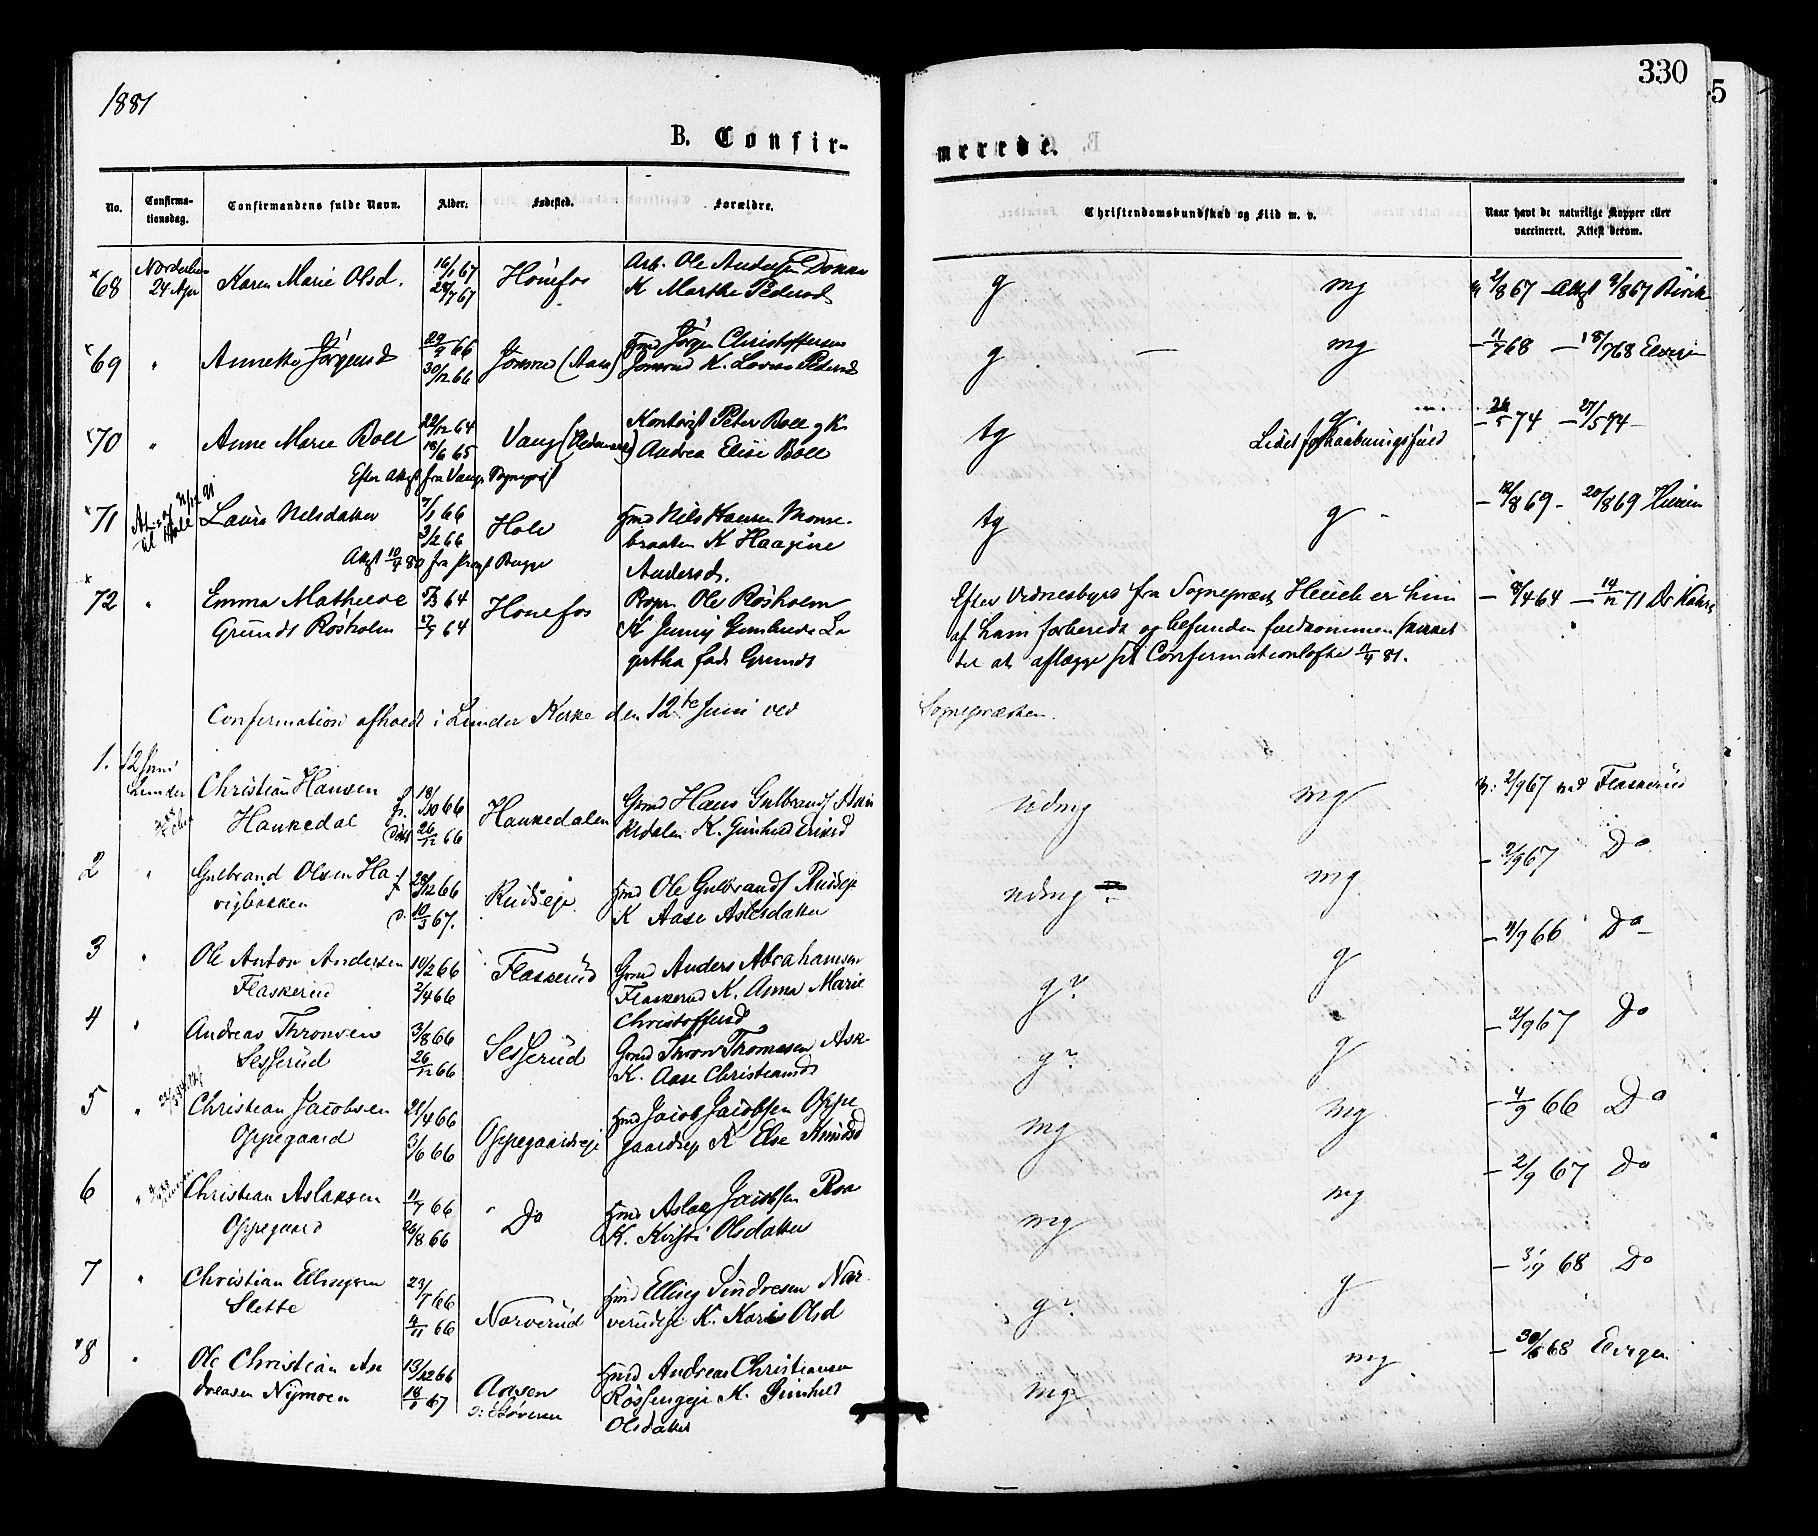 1881
330
5
B. Confir-
merede.
No.
Confirma-
tionsdag.
Confirmandens fulde Navn.
Alder.
Fødested.
Forældre.
Christendomskundskab og Flid m. v.
Naar havt de naturlige Kopper eller
vaccineret. Attest derom.
68
24 Apr
Karen Marie Olsd.
16/1 67
28/7 67
Hönefos
Arb. Ole Anders
K Marthe Pedersd
g
mg
2/8 67 - Attst 9/8 67
69
"
Jörgensd
29/9 66
30/12 66
(Aasa)
Jörgen Christoffersen
K. Lovise Pedersd
g
—
mg
— 18/7 68
70
"
Anne Marie Boll
22/12 64
18/6 65
Vang
Peter Boll og K.
Andrea Elise Boll
tg
g
Lidet forhaabningsfuld
— 26/5 74 — 27/5 74 —
Efter Attst fra Vangs Sognepræst
71
til Hole
Laura Nilsdatter
7/1 66
2/2 66
Hole
Nils Hansen Monse-
braaten K Haagine
Andersd.
tg
g
— 18/8 69 - 20/8 69
Attst 10/4 80 fra Bugge
72
"
Emma Mathilde
Grunds Rosholm
5/3 64
17/9 64
Hönefos
Ole Rosholm
K Jenny Gunhilda La
gertha født Grunds
Efter Vidnesbyrd fra Sognepræst Heuch er hun
af ham forberedt og befunden fuldkommen skikket
til at aflægge sit Confirmationsløfte 11/4 81.
— 8/4 64 — 14/12 71 Dr
Confirmation afholdt i Lunder Kirke den 12te Juni ved
Sognepræsten.
1. 12 Juni
Lunder
Christian Hansen
Haukedal
f. 18/10 66
Döbt 26/12 66
Haukedalen
Hans Gulbrands Hau
kedalen K. Gunhild
udmg
mg
v: 2/9 67 ved Flaskerud
2
"
Gulbrand Olsen Ha-
vigbakken
f 28/12 66
d. 10/3 67.
Rudseje
Hmd Ole Gulbrands Rudseje
K Aase Aslesdatter
udmg
mg
— 2/9 67 Do
3
"
Ole Anton Andersen
Flaskerud
14/2 66
2/4 66
Flaskerud
Gmd Anders Abrahamsen
Flaskerud K. Anna Marie
Christoffersd
g?
g
— 4/9 66 Do
4
"
Andreas Thronsen
Sesserud
3/8 66
26/12 66
Sesserud
Gmd Thron Thomasen Ask-
K. Aase Christiansd
g?
g
— 2/9 67 Do
5
"
Christian Jacobsen
Oppegaard
21/4 66
3/6 66
Oppegaardseje
Hmd Jacob Jacobsen Oppe
gaardseje K Else Knudsd
mg
mg
— 4/9 66 Do
6
"
Christian Aslaksen
Oppegaard
11/7 66
26/8 66
Do
Hmd Aslag Jacobsen Roa
K. Kirsti Olsdatter
mg
mg
— 2/9 67 Do
7
"
Christian Ellingsen
Slette
23/7 66
4/11 66
Narverud
Hmd Elling Sindresen Nar-
verudeje K. Kari Olsd
g?
g
— 3/9 68 Do
8
"
Ole Christian An
dreasen Nymoen
13/12 66
18/ 67
Hmd Andreas Christiansen
K. Gunhild
Olsdatter
mg
mg
— 30/ 68